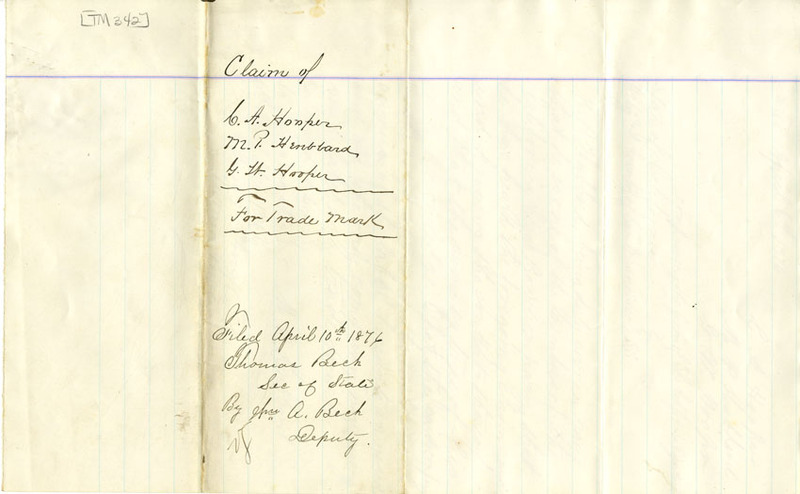 [TM 342]
Claim of
C. A. Hooper
M. P. Henbbard
G. W. Hooper
For Trade Mark
Filed April 10th 1876
Thomas Beck
Sec of State
By A. Beck
Deputy.